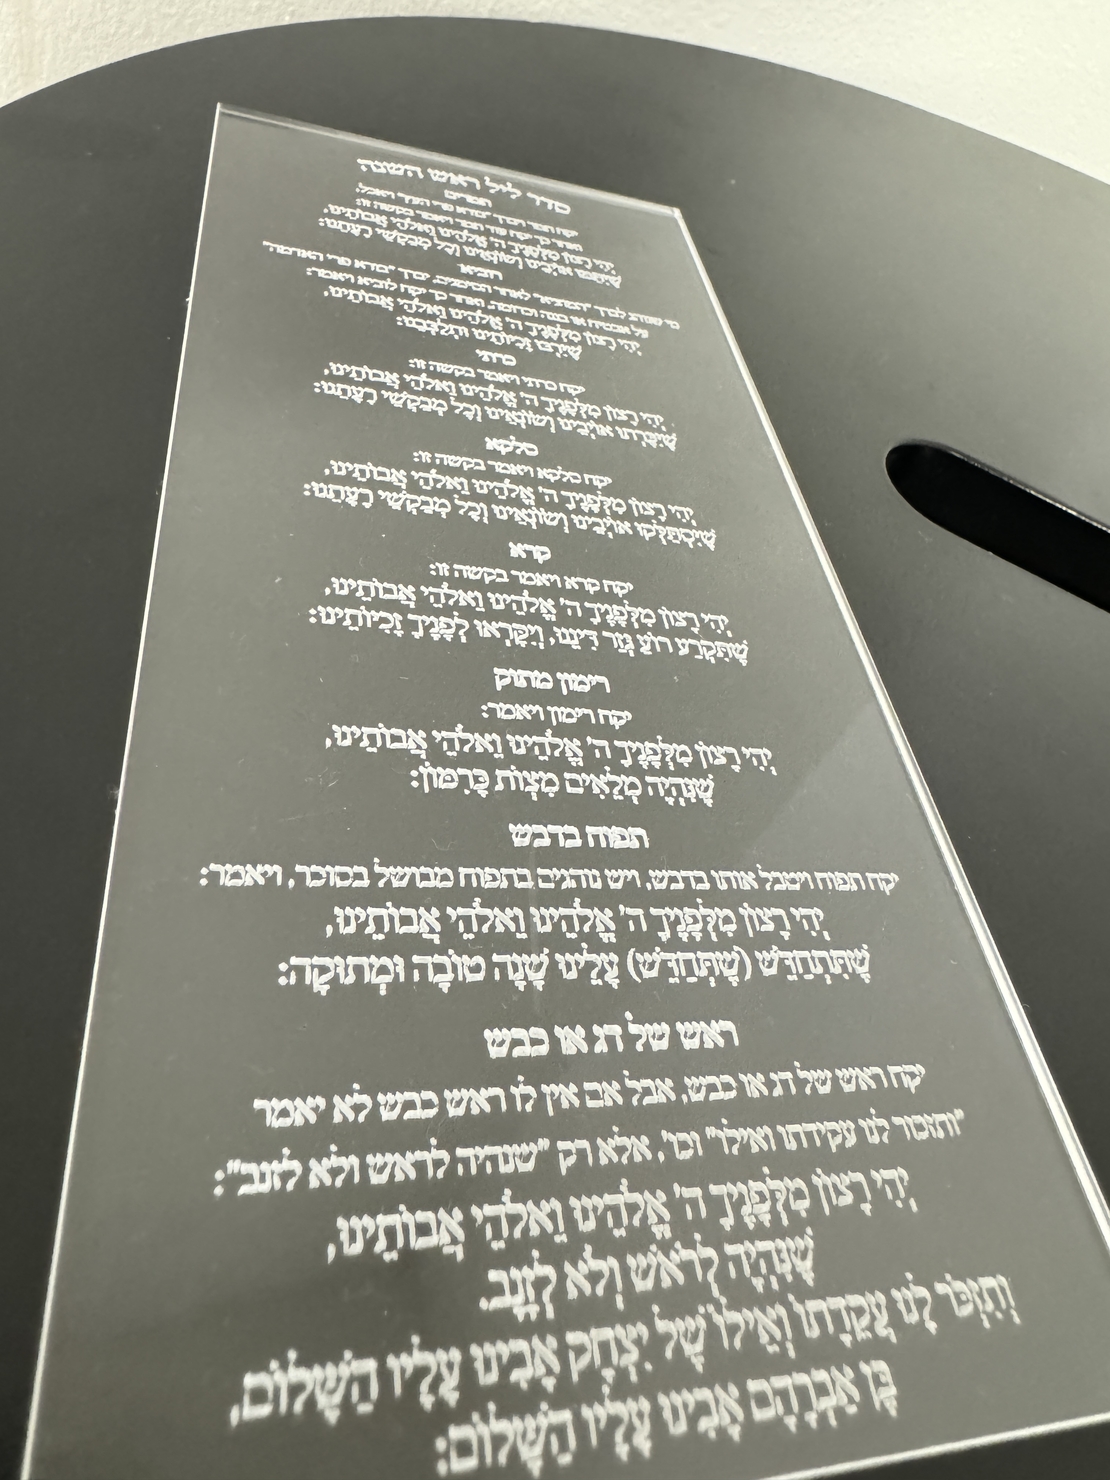 סדר ליל ראש השנה
תמרים
יקח תמר ויברך "בורא פרי העץ" ויאכל,
ואחר כך יקח עוד תמר ויאמר בקשה זו:
יְהִי רָצוֹן מִלְּפָנֶיךָ ה' אֱלֹהֵינוּ וֵאלֹהֵי אֲבוֹתֵינוּ,
שֶׁיִּתַּמּוּ אוֹיְבֵינוּ וְשׂוֹנְאֵינוּ וְכָל מְבַקְשֵׁי רָעָתֵנוּ:
רוביא
מי שנוהג לברך "המוציא" לאחר הסימנים, יברך "בורא פרי האדמה"
על אבטיח או בננה וכדומה, ואחר כך יקח לוביא ויאמר:
יְהִי רָצוֹן מִלְּפָנֶיךָ ה' אֱלֹהֵינוּ וֵאלֹהֵי אֲבוֹתֵינוּ,
שֶׁיִּרְבּוּ זָכִיּוֹתֵינוּ וּתְלַבְּבֵנוּ:
כרתי
יקח כרתי ויאמר בקשה זו:
יְהִי רָצוֹן מִלְּפָנֶיךָ ה' אֱלֹהֵינוּ וֵאלֹהֵי אֲבוֹתֵינוּ,
שֶׁיִּכָּרְתוּ אוֹיְבֵינוּ וְשׂוֹנְאֵינוּ וְכָל מְבַקְשֵׁי רָעָתֵנוּ:
סלקא
יקח סלקא ויאמר בקשה זו:
יְהִי רָצוֹן מִלְּפָנֶיךָ ה' אֱלֹהֵינוּ וֵאלֹהֵי אֲבוֹתֵינוּ,
שֶׁיִּסְתַּלְּקוּ אוֹיְבֵינוּ וְשׂוֹנְאֵינוּ וְכָל מְבַקְשֵׁי רָעָתֵנוּ:
קרא
יקח קרא ויאמר בקשה זו:
יְהִי רָצוֹן מִלְּפָנֶיךָ ה' אֱלֹהֵינוּ וֵאלֹהֵי אֲבוֹתֵינוּ,
שֶׁתִּקְרַע רוֹעַ גְּזַר דִּינֵנוּ, וְיִקָּרְאוּ לְפָנֶיךָ זָכִיּוֹתֵינוּ:
רימון מתוק
יקח רימון ויאמר:
יְהִי רָצוֹן מִלְּפָנֶיךָ ה' אֱלֹהֵינוּ וֵאלֹהֵי אֲבוֹתֵינוּ,
שֶׁנִּהְיֶה מְלֵאִים מִצְוֹת כָּרִמּוֹן:
תפוח בדבש
יקח תפוח ויטבל אותו בדבש, ויש נוהגים בתפוח מבושל בסוכר, ויאמר:
יְהִי רָצוֹן מִלְּפָנֶיךָ ה' אֱלֹהֵינוּ וֵאלֹהֵי אֲבוֹתֵינוּ,
שֶׁתִּתְחַדֵּשׁ (שֶׁתְּחַדֵּשׁ) עָלֵינוּ שָׁנָה טוֹבָה וּמְתוּקָה:
ראש של דג או כבש
יקח ראש של דג או כבש, אבל אם אין לו ראש כבש לא יאמר
"ותזכור לנו עקידתו ואילו" וכו', אלא רק "שנהיה לראש ולא לזנב":
יְהִי רָצוֹן מִלְּפָנֶיךָ ה' אֱלֹהֵינוּ וֵאלֹהֵי אֲבוֹתֵינוּ,
שֶׁנִּהְיֶה לְרֹאשׁ וְלֹא לְזָנָב.
וְתִזְכֹּר לָנוּ עֲקֵדָתוֹ וְאֵילוֹ שֶׁל יִצְחָק אָבִינוּ עָלָיו הַשָּׁלוֹם,
בֶּן אַבְרָהָם אָבִינוּ עָלָיו הַשָּׁלוֹם: